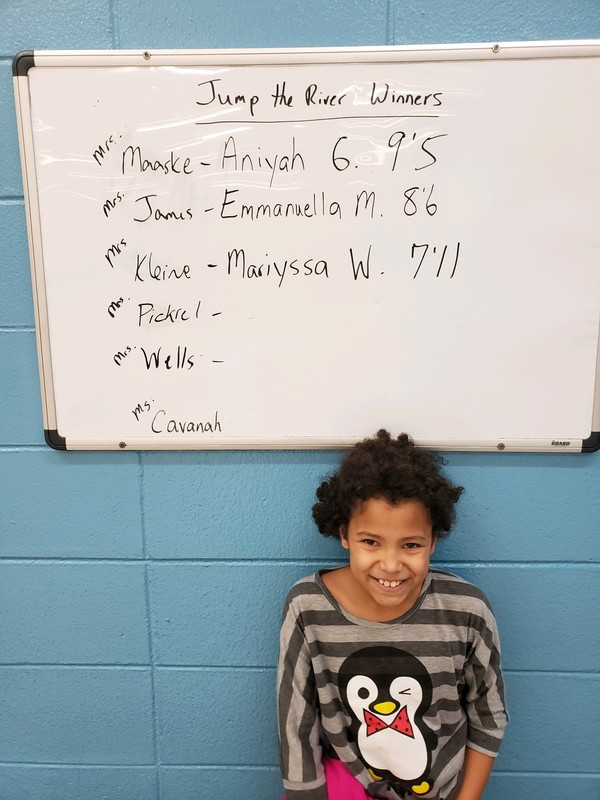 Jump the River Winners
Mrs. Maaske - Aniyah G. 9'5
Mrs. James - Emmanuella M. 8'6
Mrs Kleine - Mariyssa W. 7'11
Mrs. Pickrel -
Mrs. Wells -
Ms. Cavanah